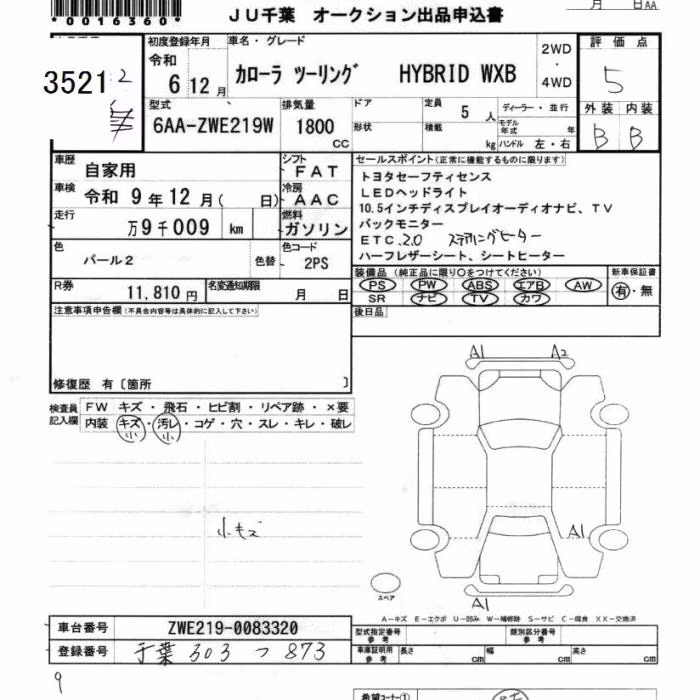 *0016360*
JU千葉 オークション出品申込書
月 日AA
3521
初度登録年月 車名・グレード
令和 6 12月 カローラ ツーリング HYBRID WXB
2WD
・
4WD
評価点
5
外装 内装
B B
型式 排気量 ドア 定員 5 人 ディーラー・並行
6AA-ZWE219W 1800 CC 形状 積載 kg モデル年式 年
ハンドル 左・右
車歴 自家用
シフト FAT
車検 令和 9年 12月( 日)
冷房 AAC
走行 万9千009 km
燃料 ガソリン
色 パール2 色替
色コード 2PS
R券 11,810円 名変通知期限 月 日
セールスポイント(正常に機能するものに限ります)
トヨタセーフティセンス
LEDヘッドライト
10.5インチディスプレイオーディオナビ、TV
バックモニター
ETC 2.0 ステアリングヒーター
ハーフレザーシート、シートヒーター
装備品(純正品に限り○をつけてください) 新車保証書
PS PW ABS エアB AW 有・無
SR ナビ TV カワ
後日品
注意事項申告欄(不具合内容等は具体的に記入して下さい)
修復歴 有〔箇所 〕
検査員記入欄
FW キズ・飛石・ヒビ割・リペア跡・×要
内装 キズ・汚レ・コゲ・穴・スレ・キレ・破レ
小 小
小キズ
A1 A2
A1
A1
スペア
A－キズ E－エクボ U－凹み W－補修跡 S－サビ C－腐食 XX－交換済
車台番号 ZWE219-0083320
登録番号 千葉 303 つ 873
型式指定番号 参考 類別区分番号 参考
車庫証明用 参考 長さ cm 幅 cm 高さ cm
9
希望コーナー①